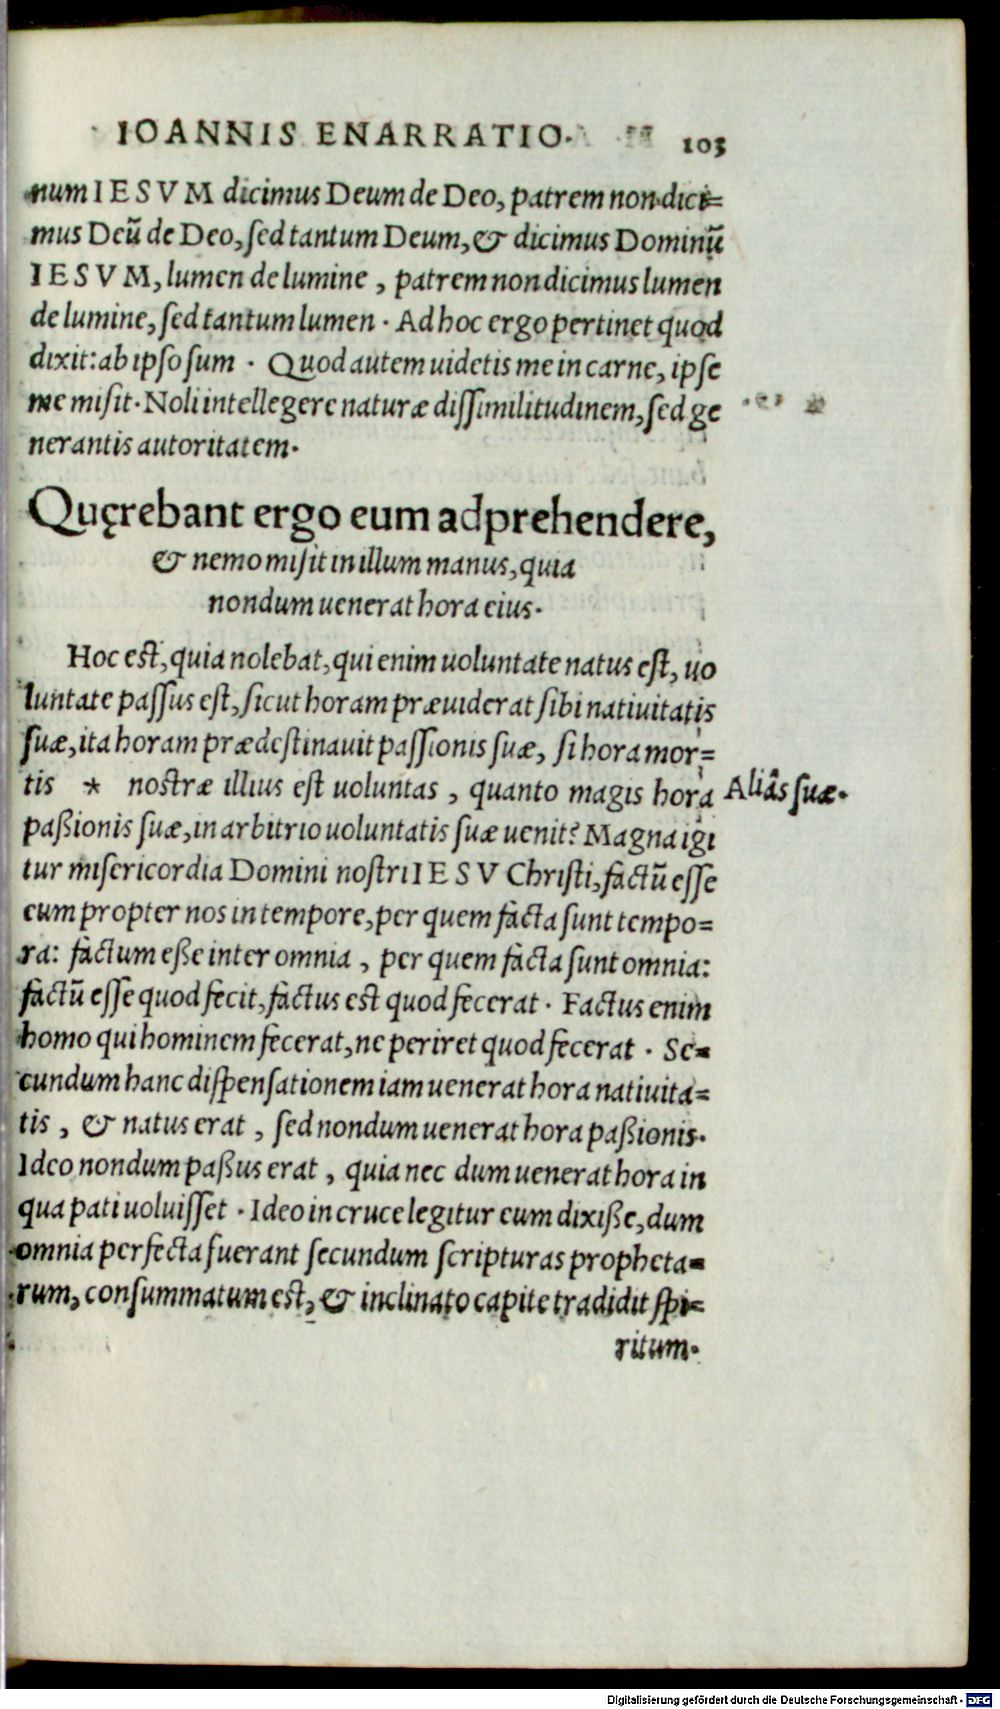 IOANNIS ENARRATIO. 103
num IESVM dicimus Deum de Deo, patrem non dici=
mus Deū de Deo, sed tantum Deum, & dicimus Dominū
IESVM, lumen de lumine, patrem non dicimus lumen
de lumine, sed tantum lumen. Ad hoc ergo pertinet quod
dixit: ab ipso sum. Quod autem uidetis me in carne, ipse
me misit. Noli intellegere naturæ dissimilitudinem, sed ge
nerantis autoritatem.
Quęrebant ergo eum adprehendere,
& nemo misit in illum manus, quia
nondum uenerat hora eius.
Hoc est, quia nolebat, qui enim uoluntate natus est, uo
luntate passus est, sicut horam præuiderat sibi natiuitatis
suæ, ita horam prædestinauit passionis suæ, si hora mor=
tis * nostræ illius est uoluntas, quanto magis hora
Aliâs suæ.
paßionis suæ, in arbitrio uoluntatis suæ uenit? Magna igi
tur misericordia Domini nostri IESV Christi, factū esse
eum propter nos in tempore, per quem facta sunt tempo=
ra: factum eße inter omnia, per quem facta sunt omnia:
factū esse quod fecit, factus est quod fecerat. Factus enim
homo qui hominem fecerat, ne periret quod fecerat. Se=
cundum hanc dispensationem iam uenerat hora natiuita=
tis, & natus erat, sed nondum uenerat hora paßionis.
Ideo nondum paßus erat, quia nec dum uenerat hora in
qua pati uoluisset. Ideo in cruce legitur eum dixiße, dum
omnia perfecta fuerant secundum scripturas propheta=
rum, consummatum est, & inclinato capite tradidit spi=
ritum.
Digitalisierung gefördert durch die Deutsche Forschungsgemeinschaft - DFG